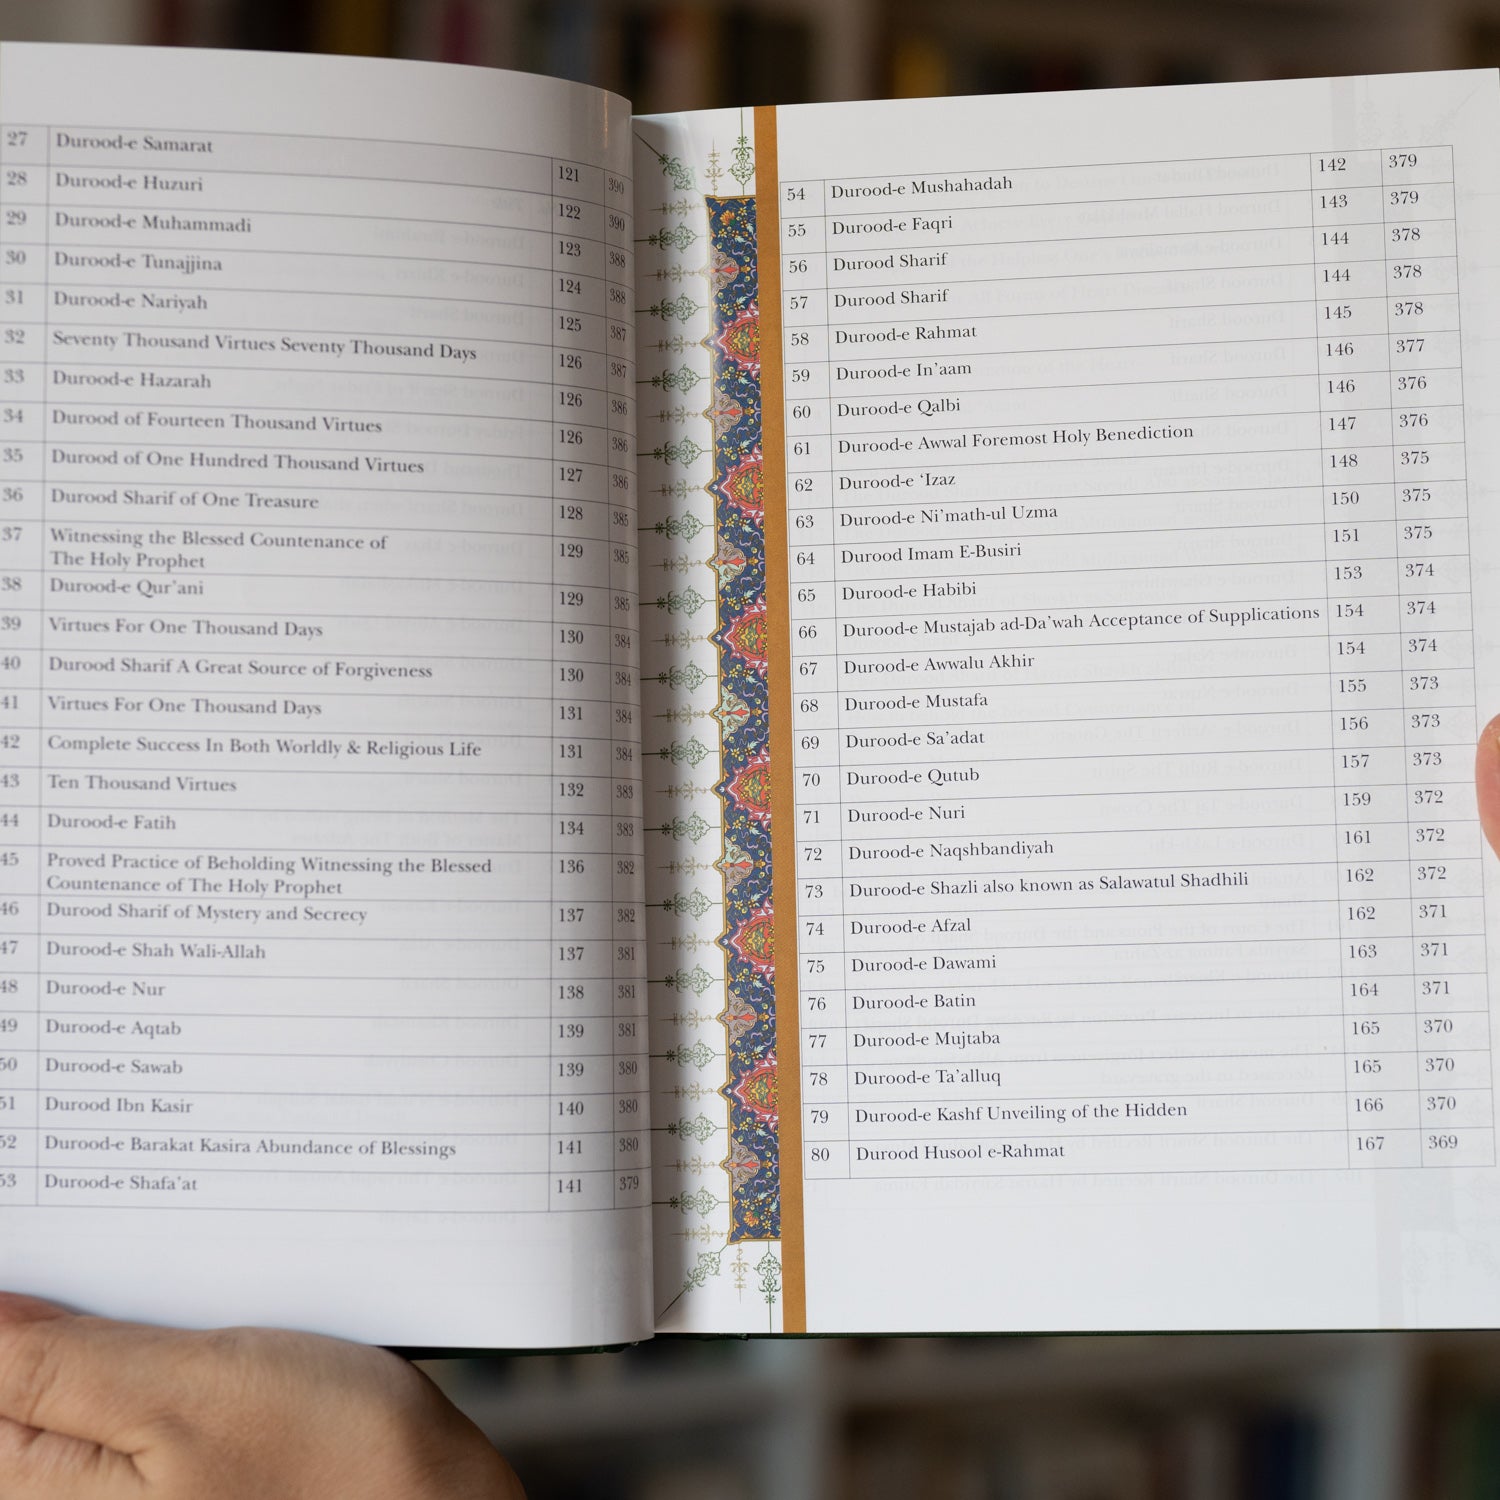 27 Durood-e Samarat 121 390
28 Durood-e Huzuri 122 390
29 Durood-e Muhammadi 123 388
30 Durood-e Tunajjina 124 388
31 Durood-e Nariyah 125 387
32 Seventy Thousand Virtues Seventy Thousand Days 126 387
33 Durood-e Hazarah 126 386
34 Durood of Fourteen Thousand Virtues 126 386
35 Durood of One Hundred Thousand Virtues 127 386
36 Durood Sharif of One Treasure 128 385
37 Witnessing the Blessed Countenance of 129 385
The Holy Prophet
38 Durood-e Qur'ani 129 385
39 Virtues For One Thousand Days 130 384
40 Durood Sharif A Great Source of Forgiveness 130 384
41 Virtues For One Thousand Days 131 384
42 Complete Success In Both Worldly & Religious Life 131 384
43 Ten Thousand Virtues 132 383
44 Durood-e Fatih 134 383
45 Proved Practice of Beholding Witnessing the Blessed 136 382
Countenance of The Holy Prophet
46 Durood Sharif of Mystery and Secrecy 137 382
47 Durood-e Shah Wali-Allah 137 381
48 Durood-e Nur 138 381
49 Durood-e Aqtab 139 381
50 Durood-e Sawab 139 380
51 Durood Ibn Kasir 140 380
52 Durood-e Barakat Kasira Abundance of Blessings 141 380
53 Durood-e Shafa'at 141 379
54 Durood-e Mushahadah 142 379
55 Durood-e Faqri 143 379
56 Durood Sharif 144 378
57 Durood Sharif 144 378
58 Durood-e Rahmat 145 378
59 Durood-e In'aam 146 377
60 Durood-e Qalbi 146 376
61 Durood-e Awwal Foremost Holy Benediction 147 376
62 Durood-e 'Izaz 148 375
63 Durood-e Ni'math-ul Uzma 150 375
64 Durood Imam E-Busiri 151 375
65 Durood-e Habibi 153 374
66 Durood-e Mustajab ad-Da'wah Acceptance of Supplications 154 374
67 Durood-e Awwalu Akhir 154 374
68 Durood-e Mustafa 155 373
69 Durood-e Sa'adat 156 373
70 Durood-e Qutub 157 373
71 Durood-e Nuri 159 372
72 Durood-e Naqshbandiyah 161 372
73 Durood-e Shazli also known as Salawatul Shadhili 162 372
74 Durood-e Afzal 162 371
75 Durood-e Dawami 163 371
76 Durood-e Batin 164 371
77 Durood-e Mujtaba 165 370
78 Durood-e Ta'alluq 165 370
79 Durood-e Kashf Unveiling of the Hidden 166 370
80 Durood Husool e-Rahmat 167 369